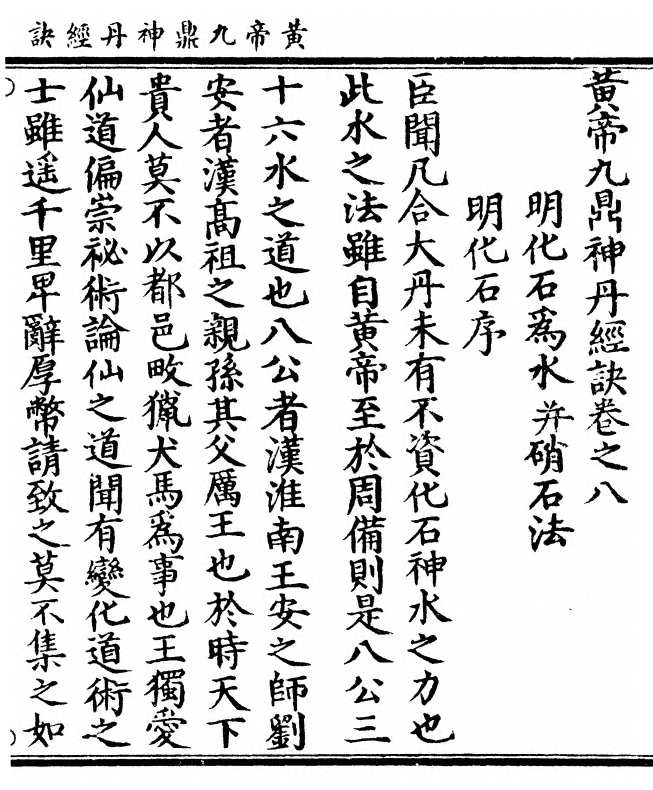 黃帝九鼎神丹經訣
黃帝九鼎神丹經訣卷之八
明化石爲水并硝石法
明化石序
臣聞凡合大丹未有不資化石神水之力也
此水之法雖自黃帝至於周備則是八公三
十六水之道也八公者漢淮南王安之師劉
安者漢髙祖之親孫其父厲王也於時天下
貴人莫不以都邑畋獵犬馬爲事也王獨愛
仙道偏崇祕術論仙之道聞有變化道術之
士雖遥千里卑辭厚幣請致之莫不集之如